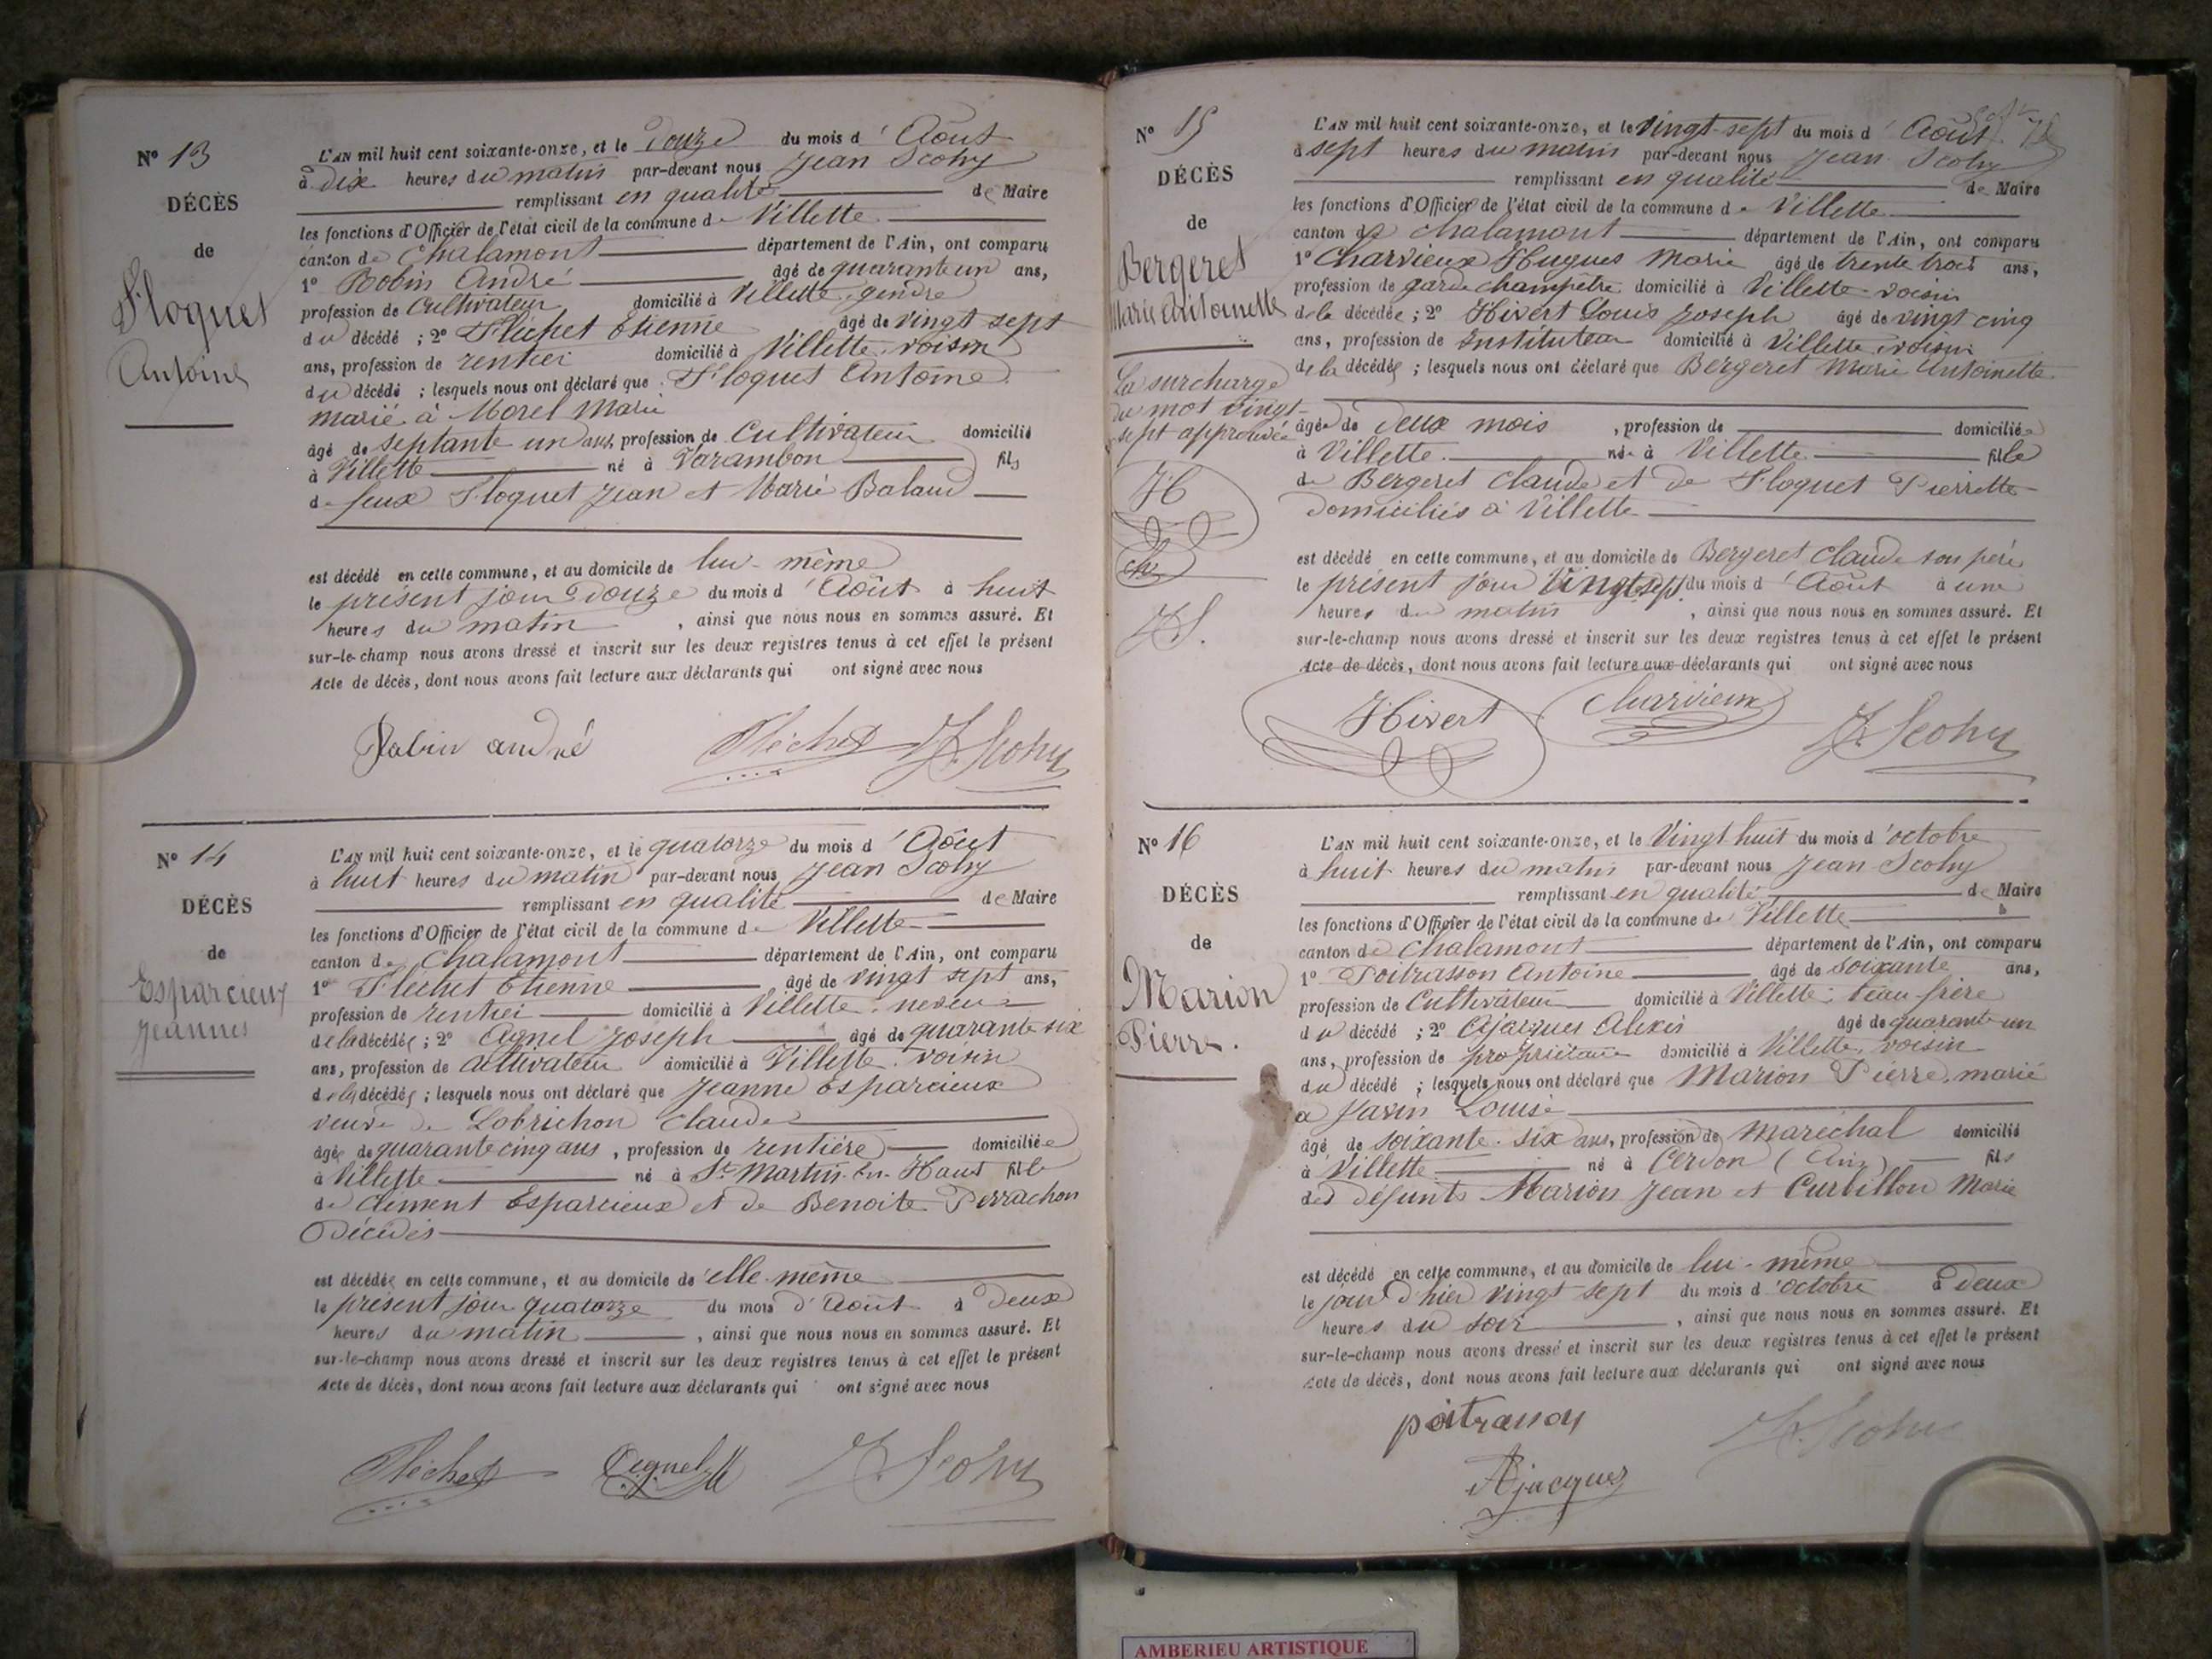 N° 13
DÉCÈS
de
Floquet
Antoine
L'AN mil huit cent soixante-onze, et le Douze du mois d'Août
à dix heures du matin par-devant nous Jean Scohy
remplissant en qualité de Maire
les fonctions d'Officier de l'état civil de la commune de Villette
canton de Chalamont département de l'Ain, ont comparu
1° Robin André âgé de quarante un ans,
profession de Cultivateur domicilié à Villette, gendre
du décédé ; 2° Flechet Etienne âgé de vingt sept
ans, profession de rentier domicilié à Villette, voisin
du décédé ; lesquels nous ont déclaré que Floquet Antoine
marié à Morel Marie
âgé de septante un ans, profession de Cultivateur domicilié
à Villette né à Varambon fils
de feux Floquet Jean et Marie Balaud
est décédé en cette commune, et au domicile de lui-même
le présent jour Douze du mois d'Août à huit
heures du matin, ainsi que nous nous en sommes assuré. Et
sur-le-champ nous avons dressé et inscrit sur les deux registres tenus à cet effet le présent
Acte de décès, dont nous avons fait lecture aux déclarants qui ont signé avec nous
Robin andré Fléchet J. Scohy
N° 14
DÉCÈS
de
Esparcieux
Jeanne
L'AN mil huit cent soixante-onze, et le quatorze du mois d'Août
à huit heures du matin par-devant nous Jean Scohy
remplissant en qualité de Maire
les fonctions d'Officier de l'état civil de la commune de Villette
canton de Chalamont département de l'Ain, ont comparu
1° Flechet Etienne âgé de vingt sept ans,
profession de rentier domicilié à Villette, neveu
de la décédée ; 2° Agnel Joseph âgé de quarante six
ans, profession de cultivateur domicilié à Villette, voisin
de la décédée ; lesquels nous ont déclaré que Jeanne Esparcieux
veuve de Lobrichon Claude
âgée de quarante cinq ans, profession de rentière domiciliée
à Villette né à St Martin-En-Haut fille
de Clément Esparcieux et de Benoite Perrachon
Décédés
est décédée en cette commune, et au domicile de elle-même
le présent jour quatorze du mois d'Août à Deux
heures du matin, ainsi que nous nous en sommes assuré. Et
sur-le-champ nous avons dressé et inscrit sur les deux registres tenus à cet effet le présent
Acte de décès, dont nous avons fait lecture aux déclarants qui ont signé avec nous
Fléchet Agnel J. Scohy
N° 15
DÉCÈS
de
Bergeret
Marie Antoinette
La surcharge
du mot vingt-
sept approuvée
H
ch
J S.
L'AN mil huit cent soixante-onze, et le Vingt-sept du mois d'Août
à sept heures du matin par-devant nous Jean Scohy
remplissant en qualité de Maire
les fonctions d'Officier de l'état civil de la commune de Villette
canton de Chalamont département de l'Ain, ont comparu
1° Charvieux Hugues Marie âgé de trente trois ans,
profession de garde champêtre domicilié à Villette voisin
de la décédée ; 2° Hivert Louis Joseph âgé de vingt cinq
ans, profession de Instituteur domicilié à Villette, voisin
de la décédée ; lesquels nous ont déclaré que Bergeret Marie Antoinette
âgée de Deux mois, profession de domiciliée
à Villette née à Villette fille
de Bergeret Claude et de Floquet Pierrette
domiciliés à Villette
est décédé en cette commune, et au domicile de Bergeret Claude son père
le présent jour Vingt sept du mois d'Août à une
heures du matin, ainsi que nous nous en sommes assuré. Et
sur-le-champ nous avons dressé et inscrit sur les deux registres tenus à cet effet le présent
Acte de décès, dont nous avons fait lecture aux déclarants qui ont signé avec nous
Hivert Charvieux J. Scohy
N° 16
DÉCÈS
de
Marion
Pierre.
L'AN mil huit cent soixante-onze, et le Vingt huit du mois d'octobre
à huit heures du matin par-devant nous Jean Scohy
remplissant en qualité de Maire
les fonctions d'Officier de l'état civil de la commune de Villette
canton de Chalamont département de l'Ain, ont comparu
1° Poitrasson Antoine âgé de Soixante ans,
profession de Cultivateur domicilié à Villette, beau-frère
du décédé ; 2° Ajacques Alexis âgé de quarante un
ans, profession de propriétaire domicilié à Villette, voisin
du décédé ; lesquels nous ont déclaré que Marion Pierre, marié
a Javin Louise
âgé de soixante-six ans, profession de maréchal domicilié
à Villette né à Cerdon (Ain) fils
des défunts Marion Jean et Curbillon Marie
est décédé en cette commune, et au domicile de lui-même
le jour d'hier vingt sept du mois d'octobre à Deux
heures du soir, ainsi que nous nous en sommes assuré. Et
sur-le-champ nous avons dressé et inscrit sur les deux registres tenus à cet effet le présent
Acte de décès, dont nous avons fait lecture aux déclarants qui ont signé avec nous
poitrasson J. Scohy
Ajacques
AMBERIEU ARTISTIQUE